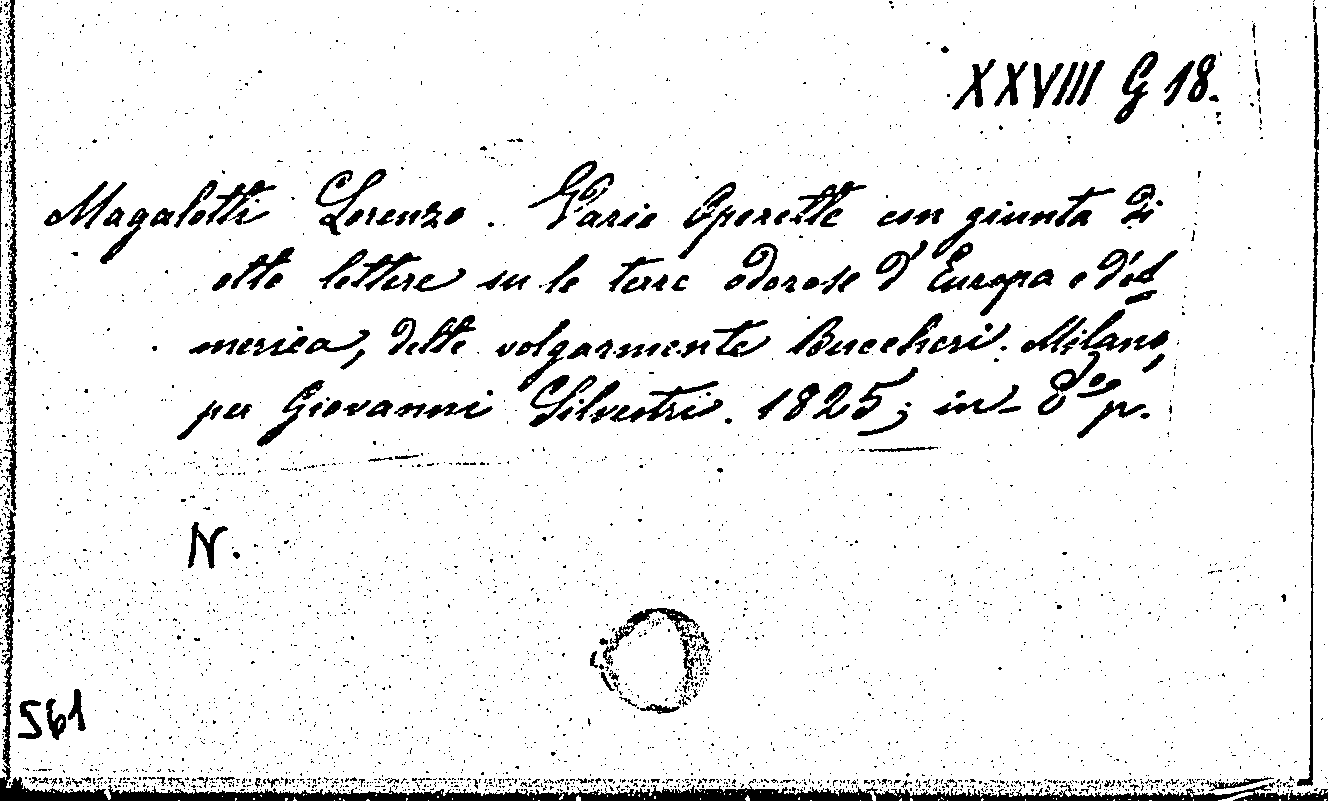 XXVIII G 18.
Magalotti Lorenzo. Varie Operette con giunta di
otto lettere su le terre odorose d'Europa e d'A=
merica, dette volgarmente Buccheri. Milano,
per Giovanni Silvestri. 1825; in-8º p.
N.
561